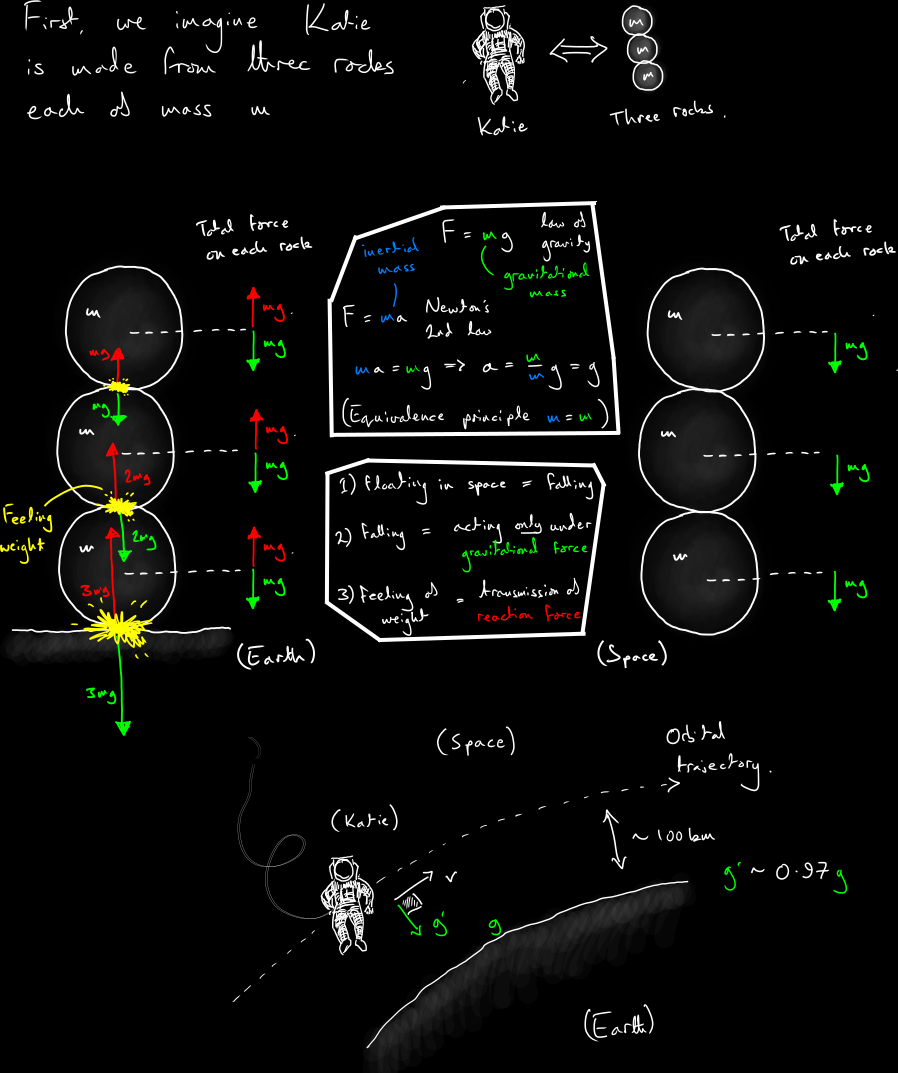 First, we imagine Katie
is made from three rocks
each of mass m
Katie
m
m
m
Three rocks.
Total force
on each rock
m
mg
mg
mg.
mg
m
2mg
mg.
mg
Feeling
weight
2mg
m
3mg
mg.
mg
3mg
(Earth)
F = mg
law of
gravity
inertial
mass
gravitational
mass
F = ma
Newton's
2nd law
ma = mg => a = m/m g = g
(Equivalence principle m = m)
1) Floating in space = falling
2) Falling = acting only under
gravitational force
3) Feeling of
weight
= transmission of
reaction force
Total force
on each rock
m
mg
m
mg
m
mg
(Space)
(Space)
Orbital
trajectory.
(Katie)
~ 100 km
v
g'
g
g' ~ 0.97g
(Earth)